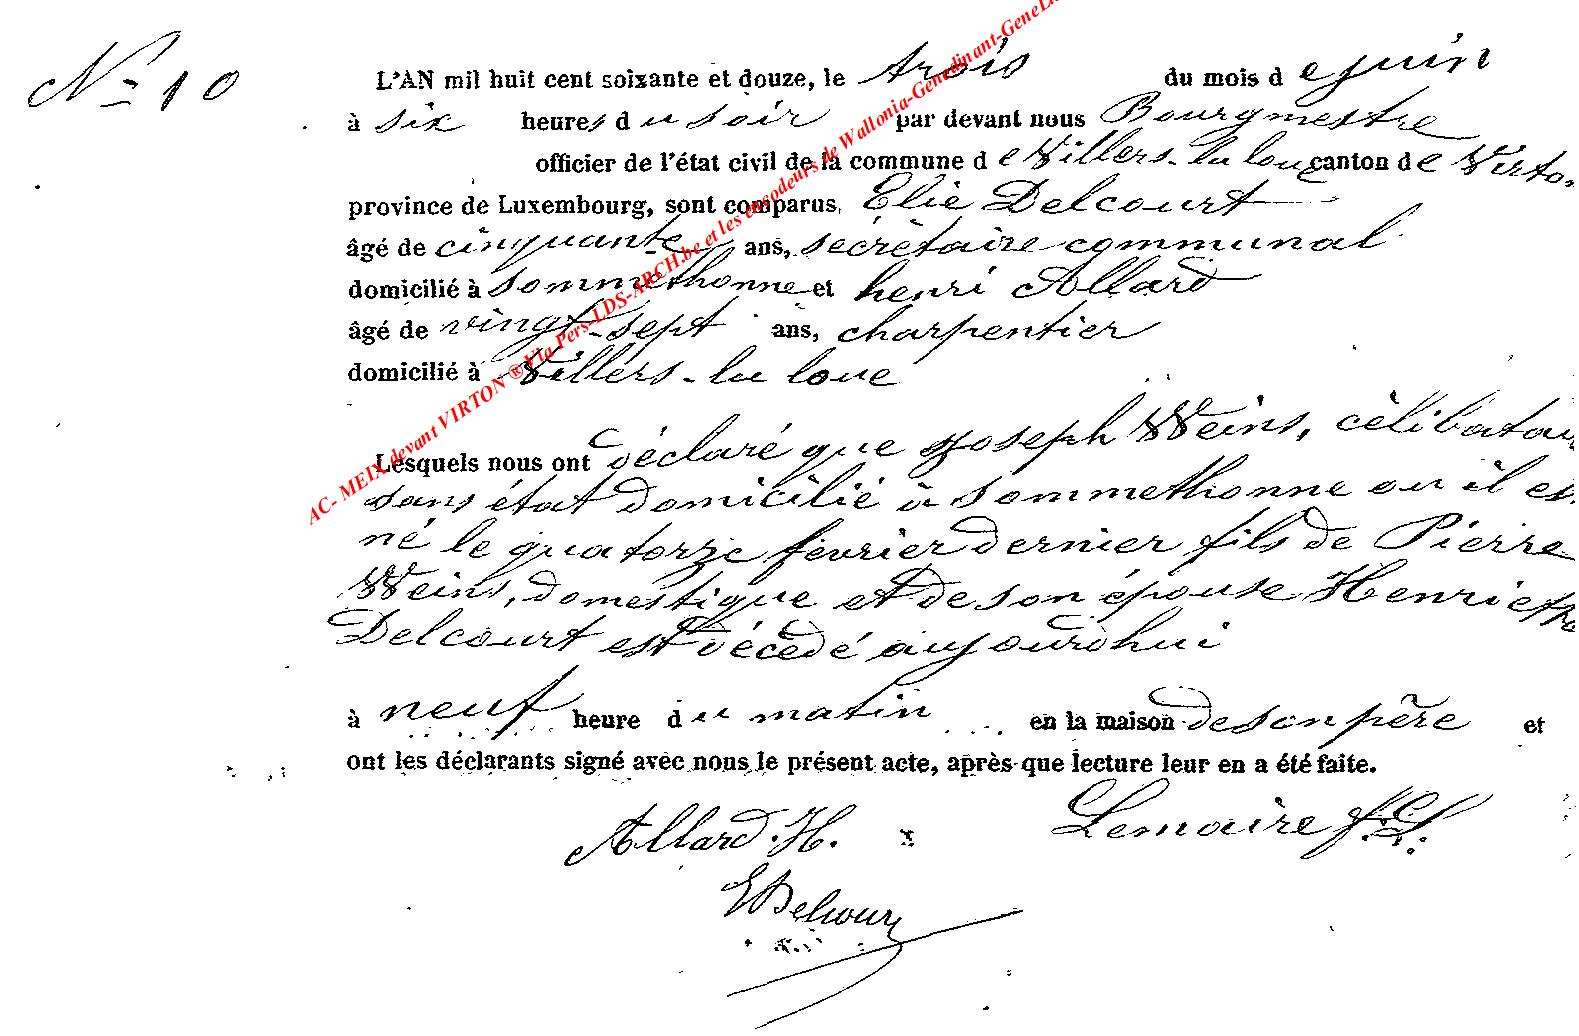 N° 10
L'AN mil huit cent soixante et douze, le trois du mois de juin
à six heures du soir par devant nous Bourgmestre
officier de l'état civil de la commune de Villers-la loue canton de Virton
province de Luxembourg, sont comparus Elie Delcourt
âgé de cinquante ans, secrétaire communal
domicilié à Sommethonne et henri Allard
âgé de vingt-sept ans, charpentier
domicilié à Villers-la loue
Lesquels nous ont déclaré que Joseph Weins, célibatai
sans état domicilié à Sommethonne ou il es
né le quatorze février dernier fils de Pierre
Weins, domestique et de son épouse Henriette
Delcourt est décédé aujourdhui
à neuf heure du matin en la maison de son père et
ont les déclarants signé avec nous le présent acte, après que lecture leur en a été faite.
Allard H. Lemaire
EDelcour
AC- MEIX devant VIRTON ® Via Pers-LDS-ARCH.be et les encodeurs de Wallonia-Genedinant-GeneLi